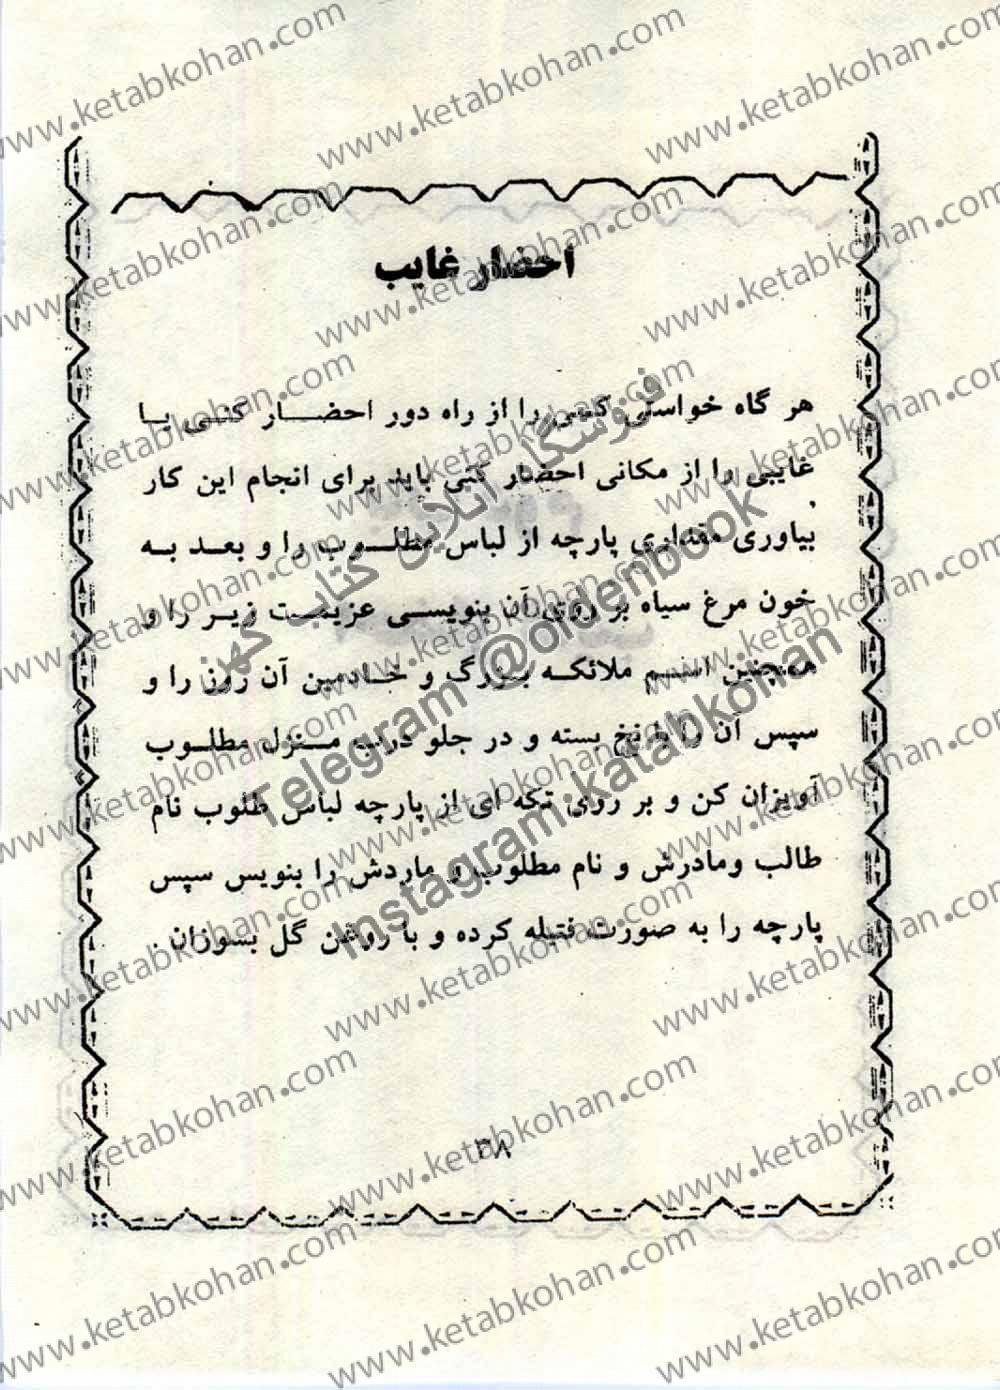 احضار غایب
هر گاه خواستی کسی را از راه دور احضار کنی یا
غایبی را از مکانی احضار کنی باید برای انجام این کار
بیاوری مقداری پارچه از لباس مطلوب را و بعد به
خون مرغ سیاه بر روی آن بنویسی عزیمت زیر را و
همچنین اسم ملائکه بزرگ و خادمین آن روز را و
سپس آن را با نخ بسته و در جلو درب منزل مطلوب
آویزان کن و بر روی تکه ای از پارچه لباس طلوب نام
طالب ومادرش و نام مطلوب و ماردش را بنویس سپس
پارچه را به صورت فتیله کرده و با روغن گل بسوزان .
۳۸
www.ketabkohan.com
فروشگاه آنلاین کتاب کهن
Telegram @oldenbook
instagram:katabkohan